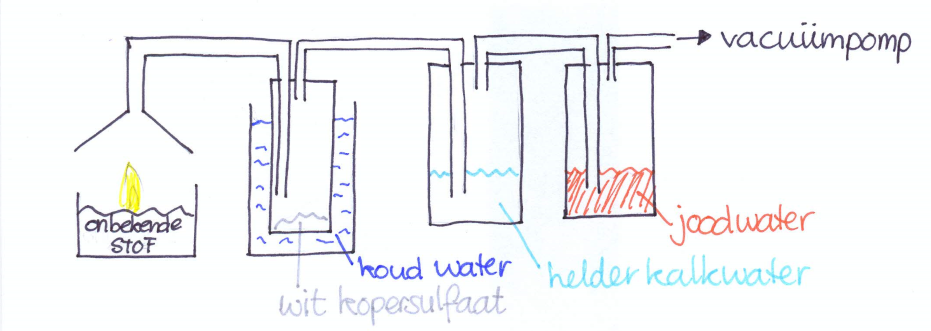 vacuümpomp
onbekende
STOF
joodwater
koud water
helder kalkwater
wit kopersulfaat